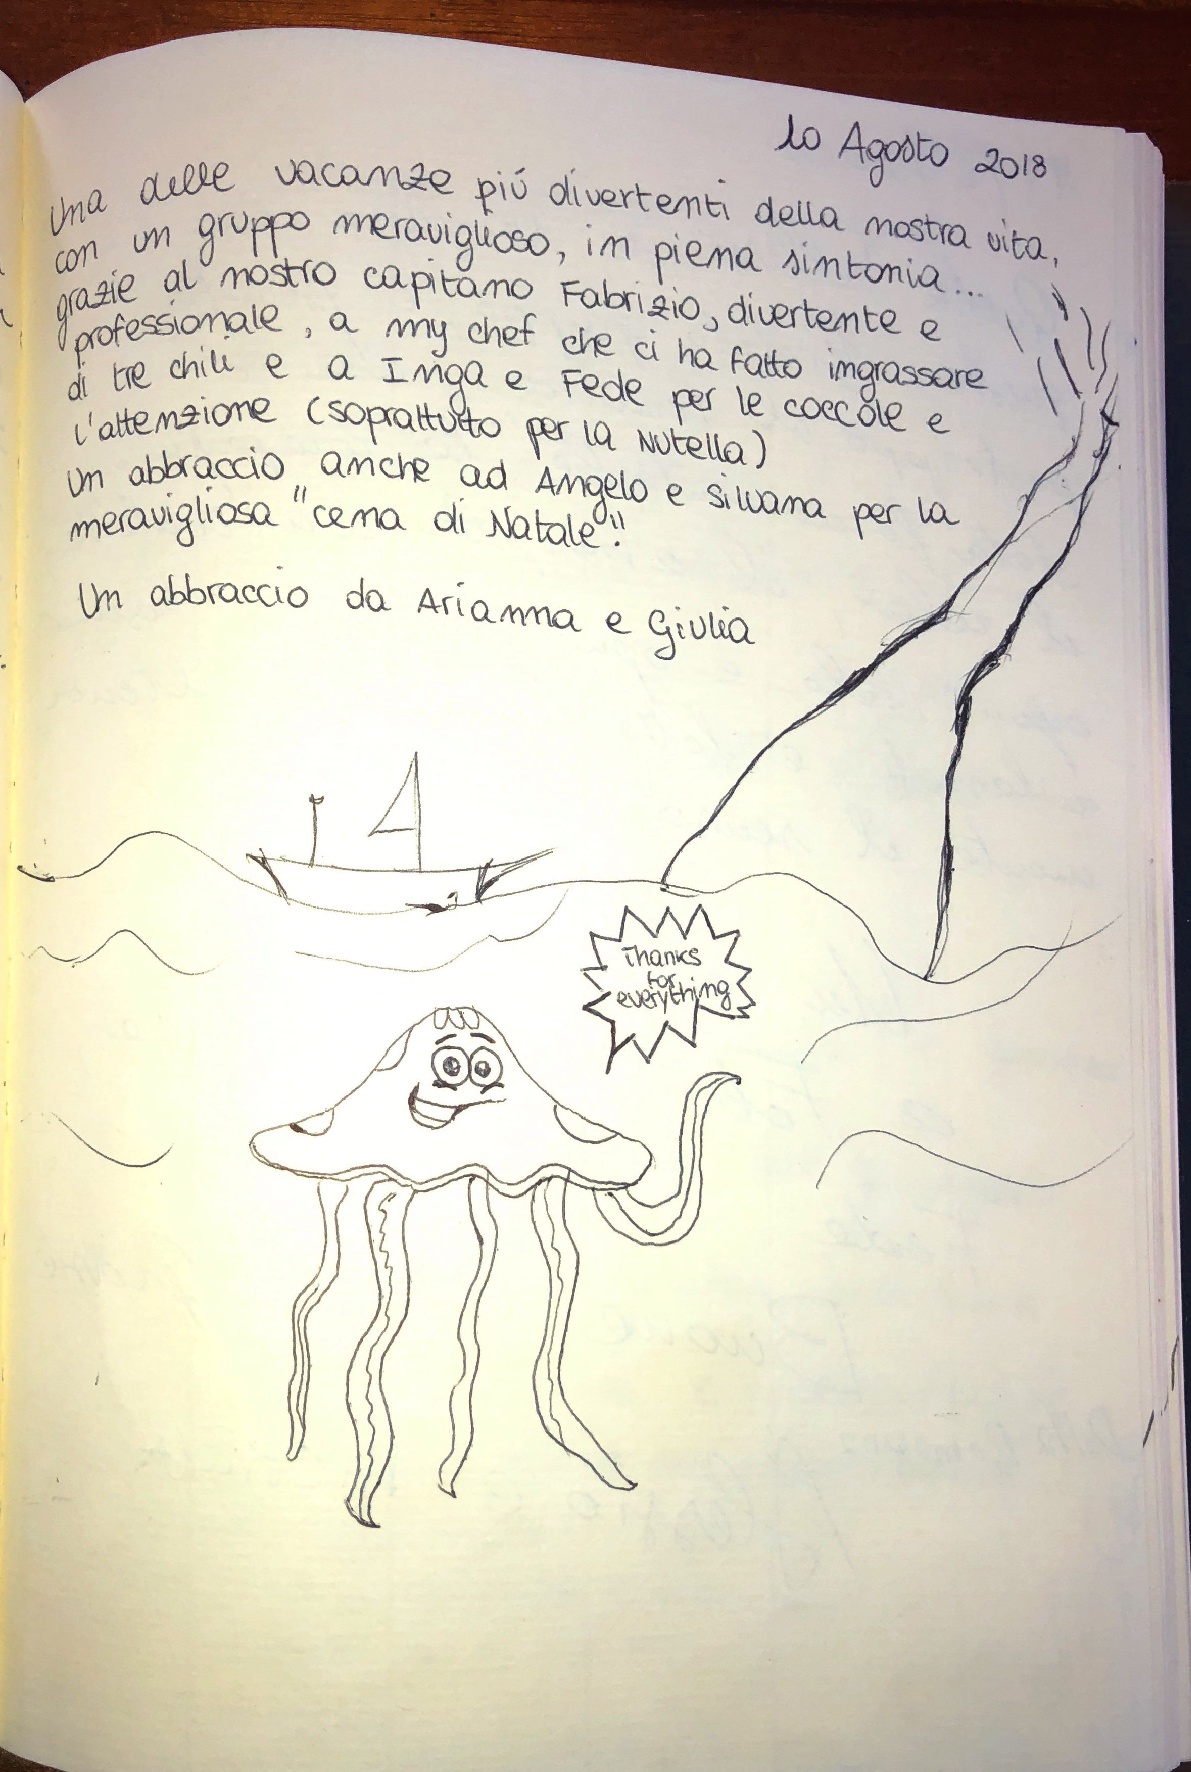 10 Agosto 2018
Una delle vacanze piú divertenti della nostra vita,
con un gruppo meraviglioso, in piena sintonia...
grazie al nostro capitano Fabrizio, divertente e
professionale, a my chef che ci ha fatto ingrassare
di tre chili e a Inga e Fede per le coccole e
l'attenzione (soprattutto per la Nutella)
Un abbraccio anche ad Angelo e Silvana per la
meravigliosa "cena di Natale"!
Un abbraccio da Arianna e Giulia
Thanks
for
everything